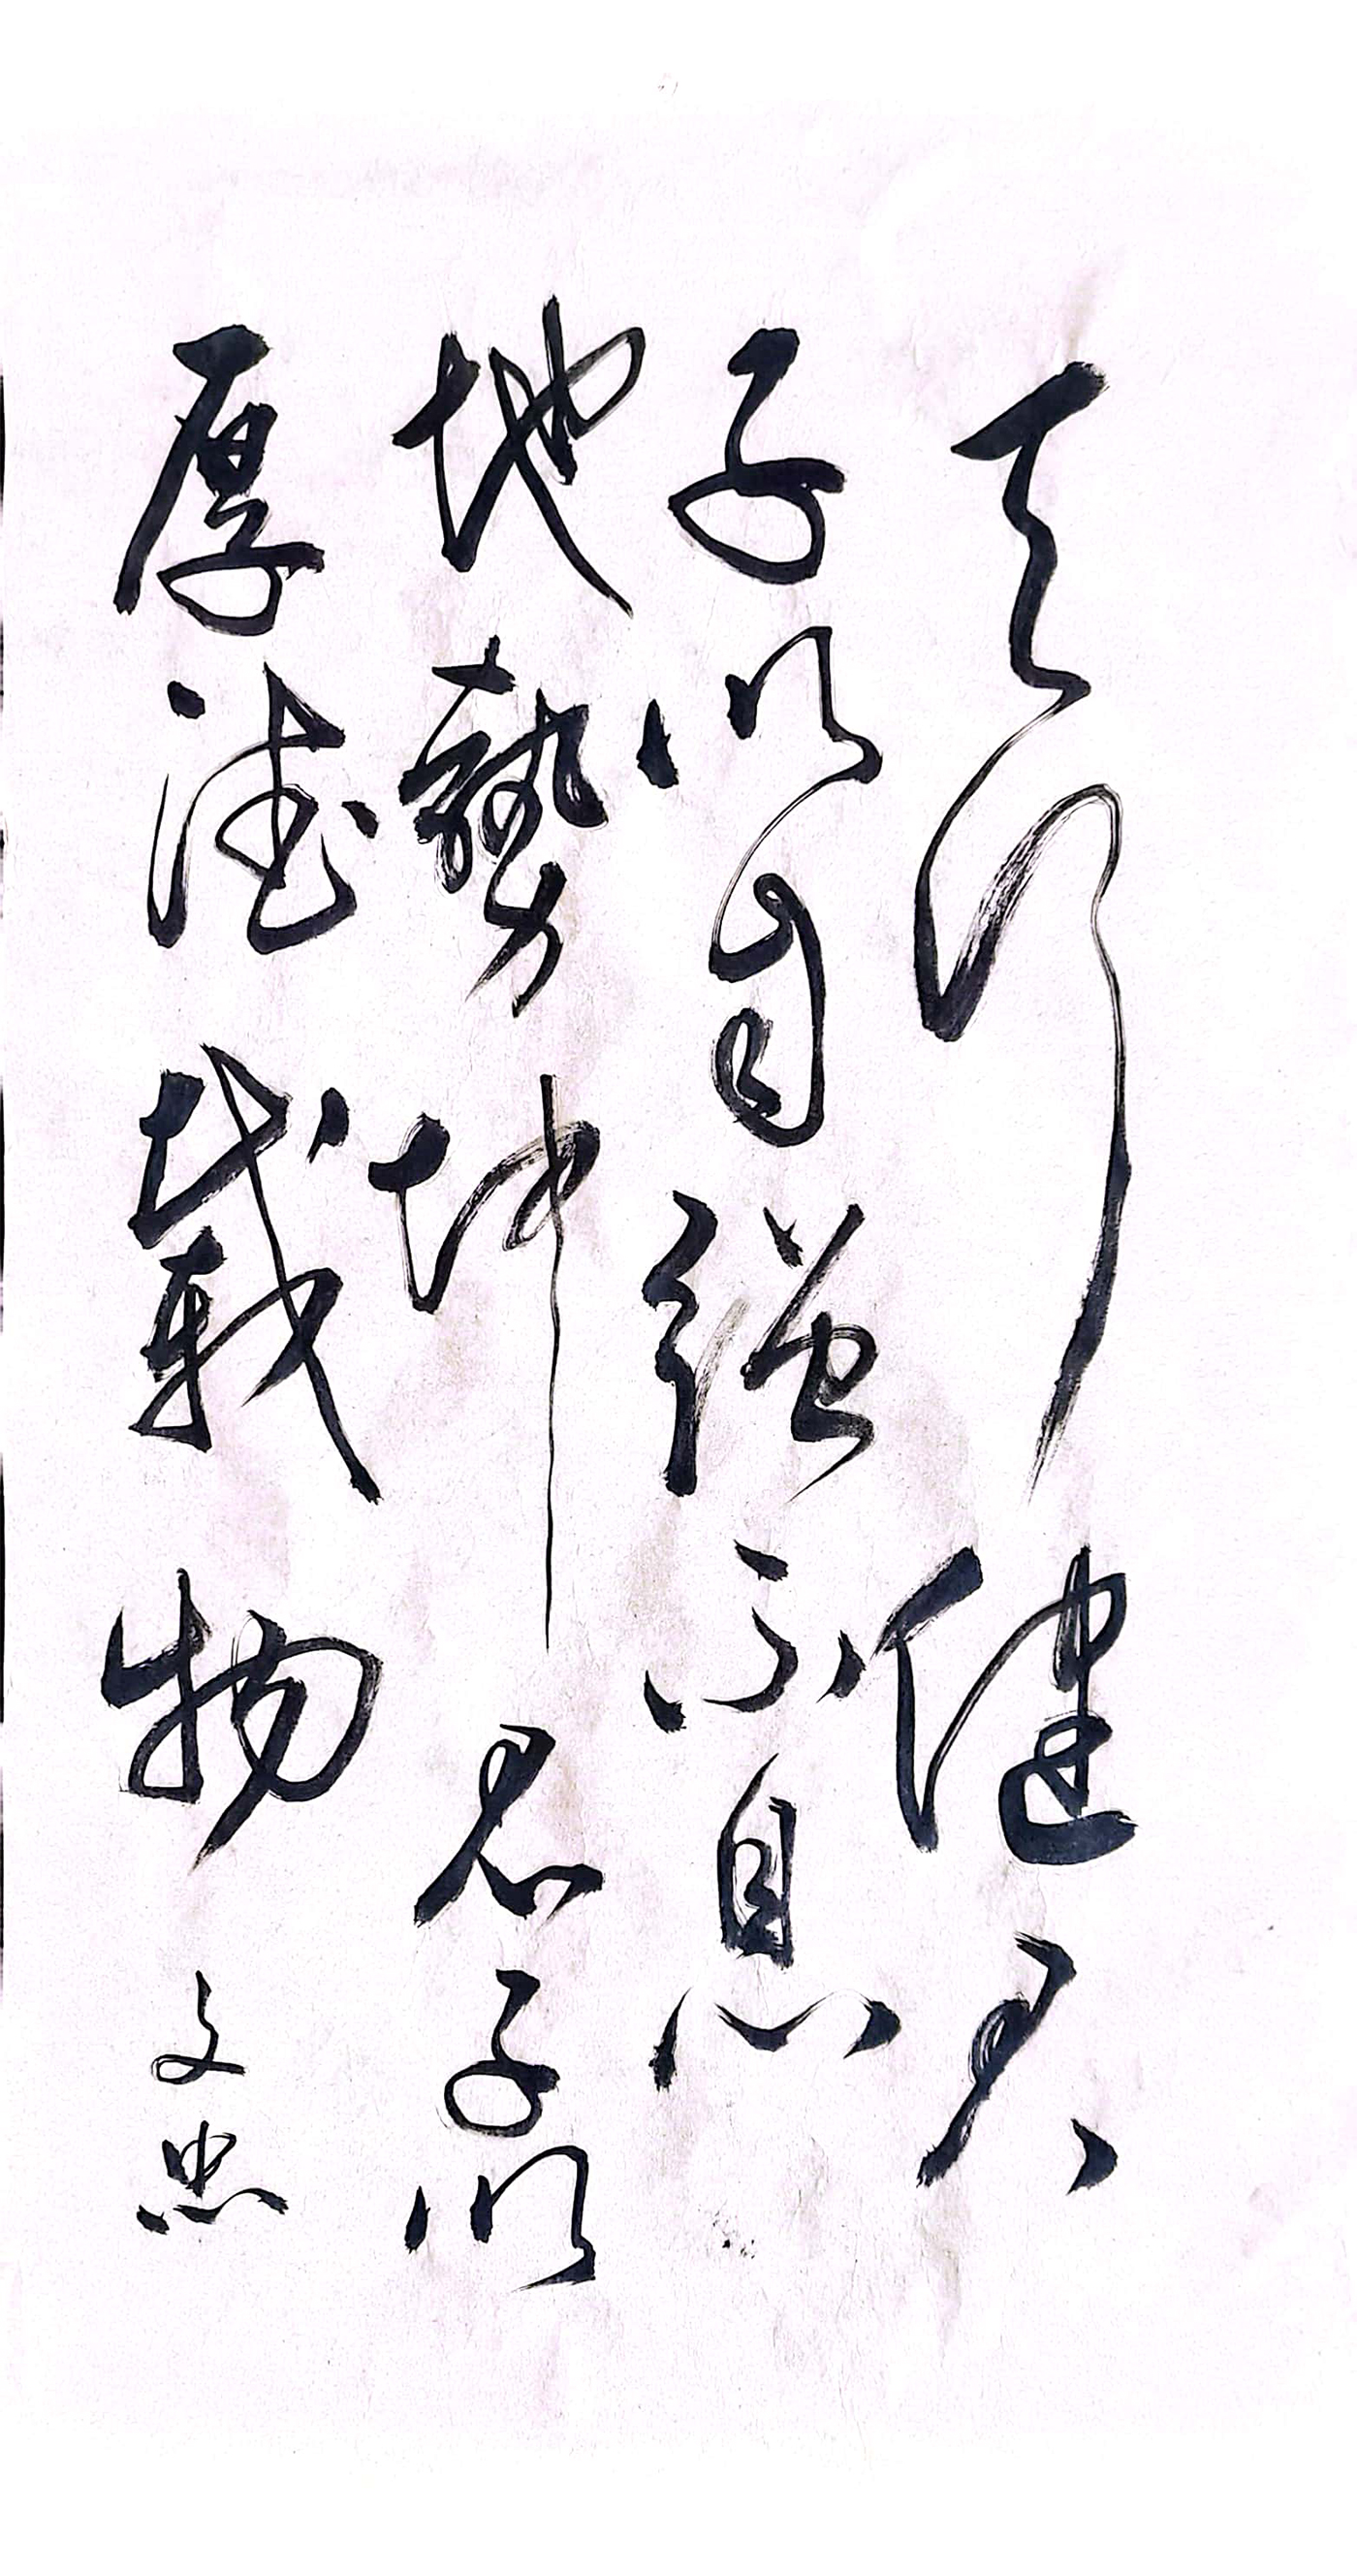 天行健君
子以自強不息
地勢坤君子以
厚德載物文忠